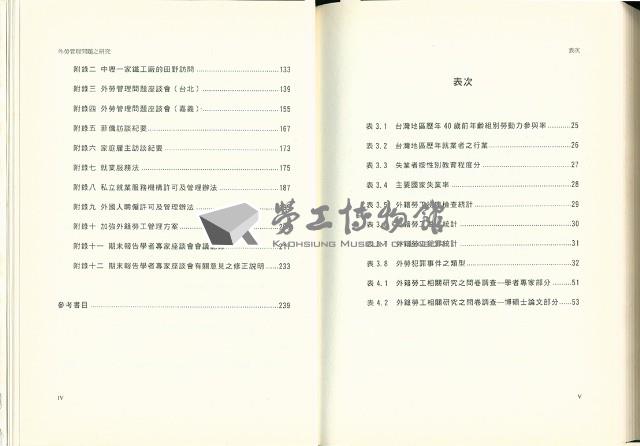 外勞管理問題之研究
附錄二 中壢一家鐵工廠的田野訪問 133
附錄三 外勞管理問題座談會（台北） 139
附錄四 外勞管理問題座談會（嘉義） 155
附錄五 菲傭訪談紀要 167
附錄六 家庭雇主訪談紀要 173
附錄七 就業服務法 175
附錄八 私立就業服務機構許可及管理辦法 187
附錄九 外國人聘僱許可及管理辦法
附錄十 加強外籍勞工管理方案
附錄十一 期末報告學者專家座談會會議
附錄十二 期末報告學者專家座談會有關意見之修正說明 233
參考書目 239
iv
表次
表次
表 3.1 台灣地區歷年 40 歲前年齡組別勞動力參與率 25
表 3.2 台灣地區歷年就業者之行業 26
表 3.3 失業者按性別教育程度分 27
表 3.4 主要國家失業率 28
表 3.5 外籍勞工 檢查統計 29
外籍勞工 統計 30
外籍勞工犯罪統計 31
表 3.8 外勞犯罪事件之類型 32
表 4.1 外籍勞工相關研究之問卷調查—學者專家部分 51
表 4.2 外籍勞工相關研究之問卷調查—博碩士論文部分 53
v
勞工博物館
KAOHSIUNG MUSEUM OF LABOR